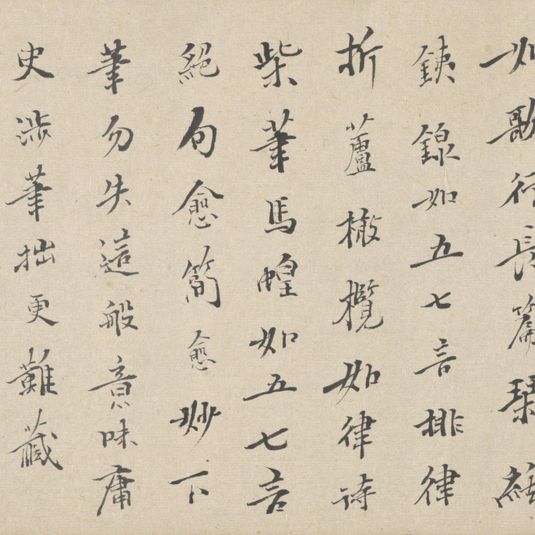 如歌行長篇琹
鋏鎳如五七言排律
折蘆橄欖如律詩
柴筆馬蝗如五七言
絕句愈簡愈妙下
筆勿失這般意味庸
史涉筆拙更難藏